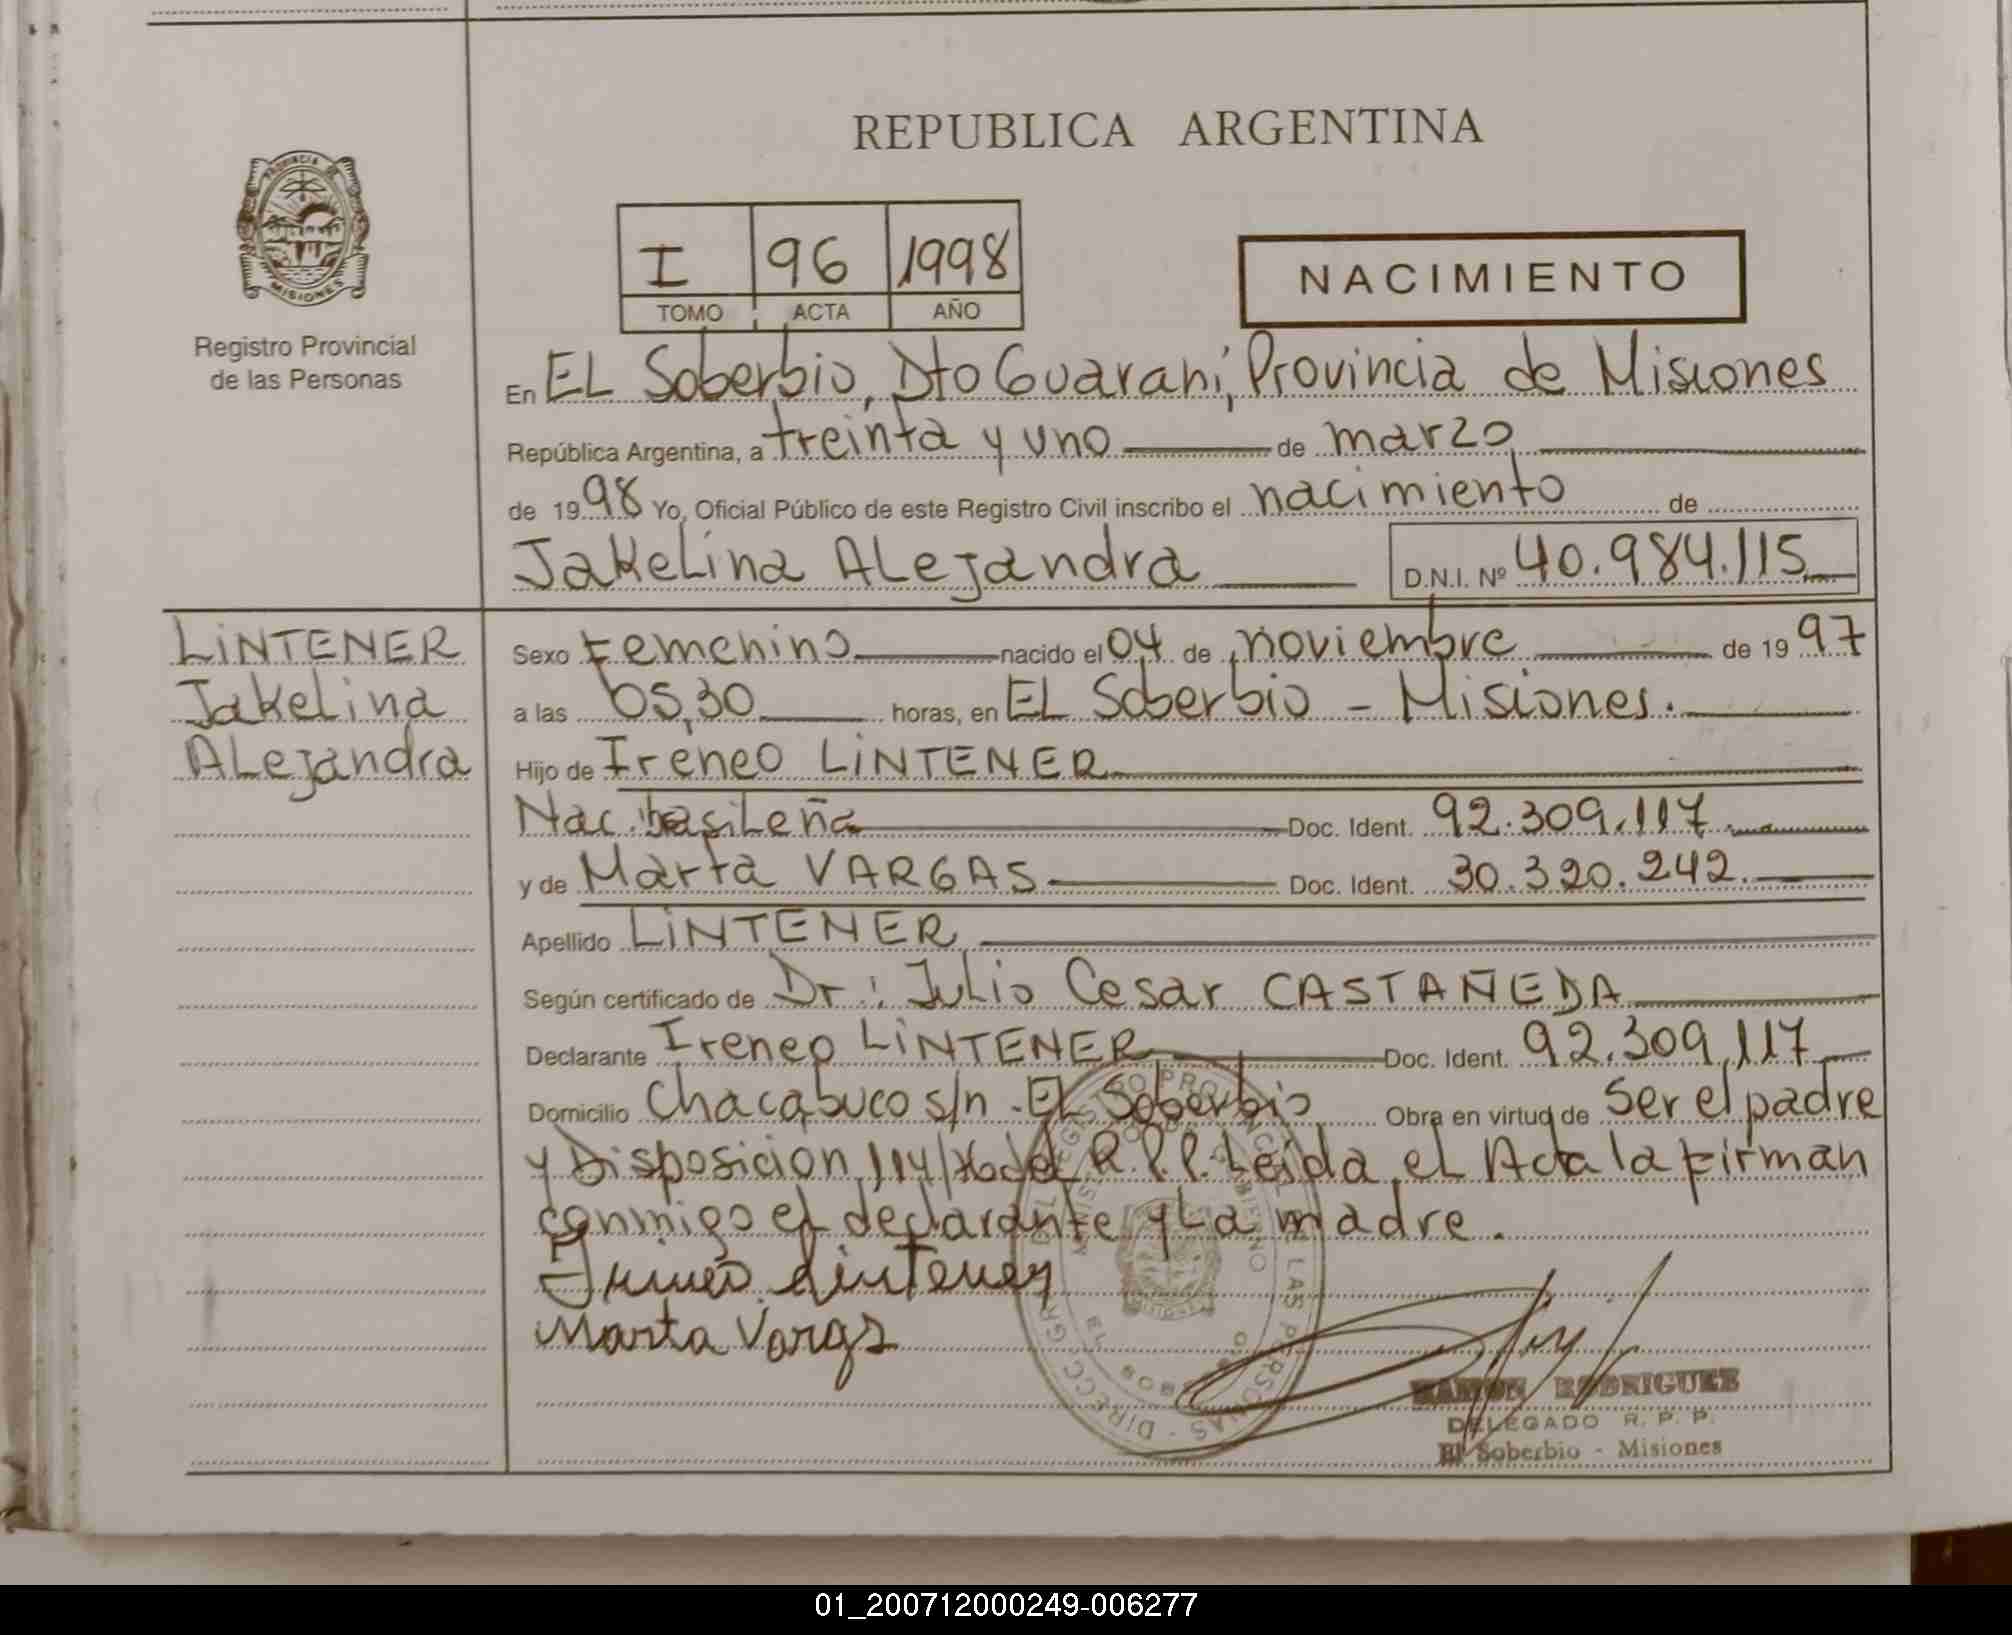 REPUBLICA ARGENTINA
PROVINCIA DE
MISIONES
Registro Provincial
de las Personas
I 96 1998
TOMO ACTA AÑO
NACIMIENTO
En EL Soberbio, Dto Guaraní, Provincia de Misiones
República Argentina, a treinta y uno de marzo
de 1998 Yo, Oficial Público de este Registro Civil inscribo el nacimiento de
Jakelina ALejandra D.N.I. Nº 40.984.115
LINTENER
Jakelina
ALejandra
Sexo Femenino nacido el 04 de noviembre de 1997
a las 05,30 horas, en EL Soberbio - Misiones.
Hijo de Ireneo LINTENER
Nac. brasiLeña Doc. Ident. 92.309.117
y de Marta VARGAS Doc. Ident. 30.320.242
Apellido LINTENER
Según certificado de Dr: Julio Cesar CASTAÑEDA
Declarante Ireneo LINTENER Doc. Ident. 92.309.117
Domicilio Chacabuco s/n - EL Soberbio Obra en virtud de Ser el padre
y Disposicion 114/ del R.P.P. Leida el Acta la firman
conmigo el declarante y La madre.
Irineo Lintener
Marta Vargs
RAMON RODRIGUEZ
DELEGADO R. P. P.
El Soberbio - Misiones
01_200712000249-006277